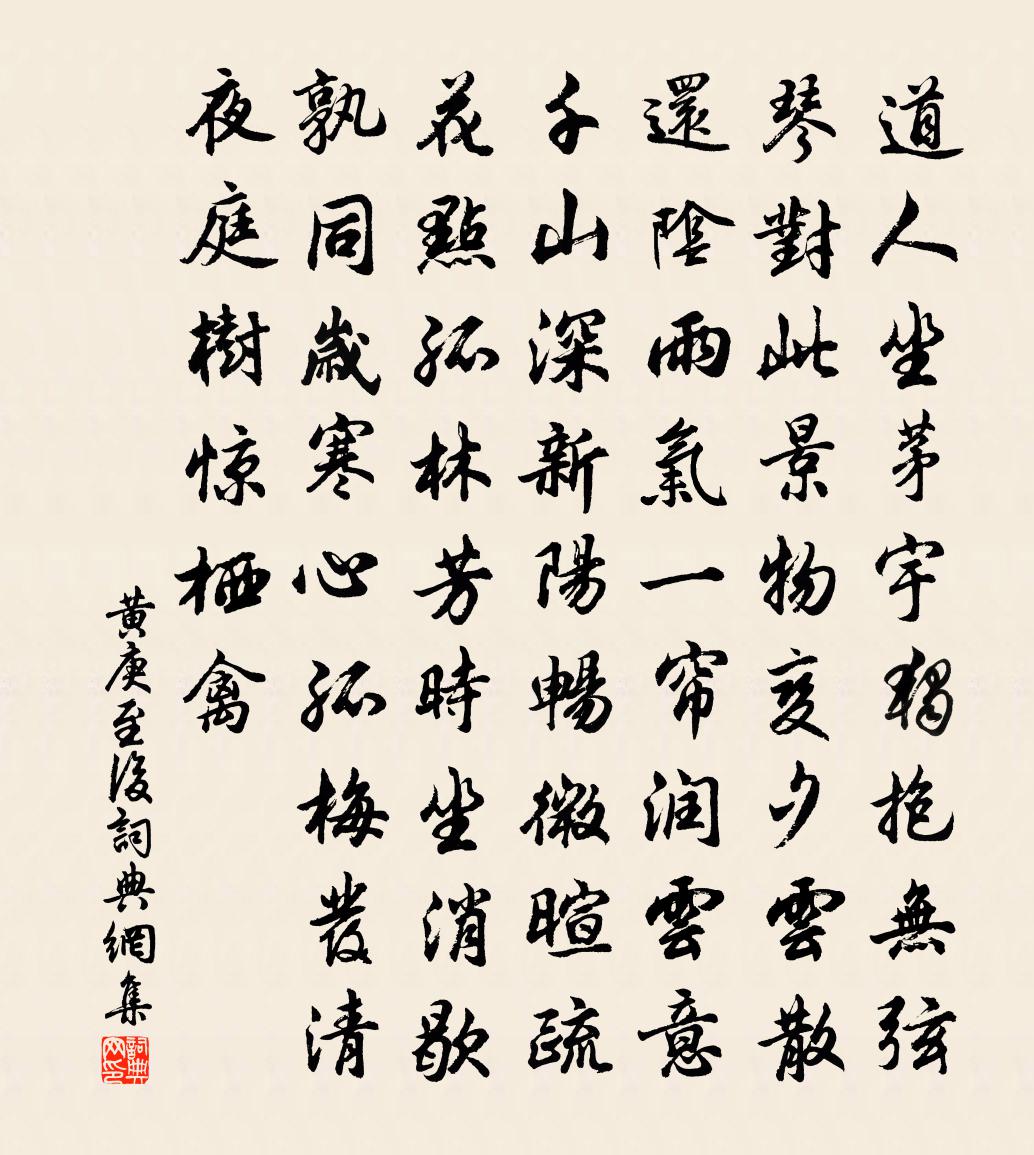 道人坐茅宇獨抱無弦
琴對此景物变夕雲散
還陰雨氣一帘润雲意
千山深新陽暢微暄疏
花點孤林芳時坐消歇
孰同歲寒心孤梅發清
夜庭樹惊栖禽
黄庚至後詞典網集
詞典网印